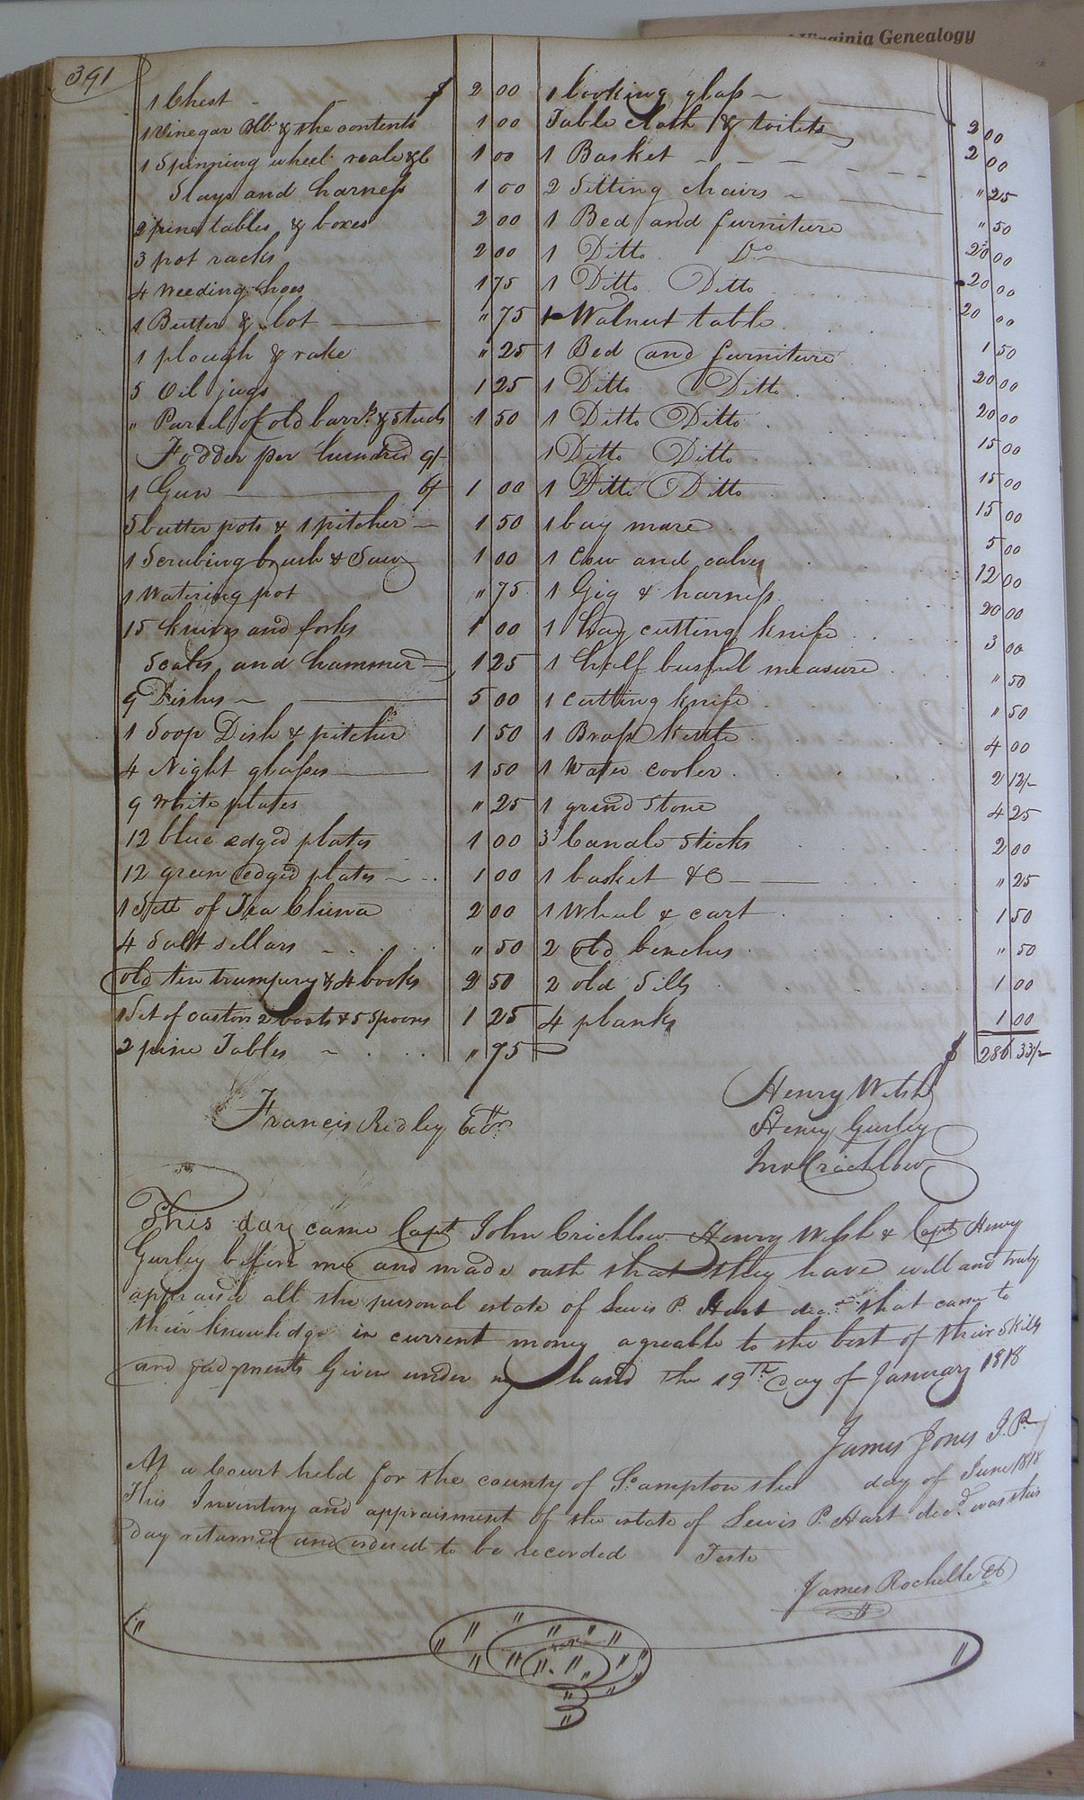 Virginia Genealogy
391
1 Chest - $ 2 00
1 Vinegar Bbl. & the contents 1 00
1 Spinning wheel reale &c 1 00
Slays and harness 1 00
2 pine tables & boxes 2 00
3 pot racks 2 00
4 Weeding hoes 1 75
1 Butter & Lot " 75
1 plough & rake " 25
5 Oil jugs 1 25
" Parcel of old barrls. & stuels 1 50
Fodder per hundred 9/-
1 Gun 6/ 1 00
5 butter pots & 1 pitcher 1 50
1 Scrubing brush & Saw 1 00
1 Watering pot " 75
15 knives and forks 1 00
Scales and hammer 1 25
9 Dishes 5 00
1 Soop Dish & pitcher 1 50
4 Night glasses 1 50
9 White plates " 25
12 blue edged plates 1 00
12 green edged plates 1 00
1 Sett of Tea China 2 00
4 Salt sellars " 50
old tin trumpery & 4 books 2 50
1 Set of castors 2 boats & 5 Spoons 1 25
2 pine Tables " 75
1 looking glass 2 00
Table cloth & toilets 2 00
1 Basket " 25
2 Sitting chairs " 50
1 Bed and furniture 20 00
1 Ditto Do 20 00
1 Ditto Ditto 20 00
1 Walnut table 1 50
1 Bed and furniture 20 00
1 Ditto Ditto 20 00
1 Ditto Ditto 15 00
1 Ditto Ditto 15 00
1 Ditto Ditto 15 00
1 bay mare 5 00
1 Cow and calves 12 00
1 Gig & harness 20 00
1 hay cutting knife 3 00
1 half bushel measure " 50
1 cutting knife " 50
1 Brass kettle 4 00
1 Water cooler 2 12½
1 grind stone 4 25
3 Candle sticks 2 00
1 basket &C " 25
1 Wheel & cart 1 50
2 old benches " 50
2 old Sills 1 00
4 planks 1 00
$ 286 33½
Francis Ridley Extr.
Henry Welsh
Henry Gurley
Jno Crichlow
This day came Capt John Crichlow Henry Welsh & Capt Henry
Gurley before me and made oath that they have well and truly
appraised all the personal estate of Lewis P. Hart decd. that came to
their knowledge in current money agreable to the best of their skills
and judgments Given under my hand the 19th Day of January 1818
James Jones J. P.
At a Court held for the county of So.ampton the day of June 1818
This Inventory and appraisment of the estate of Lewis P. Hart decd. was this
day returned and ordered to be recorded Teste
James Rochelle Ct